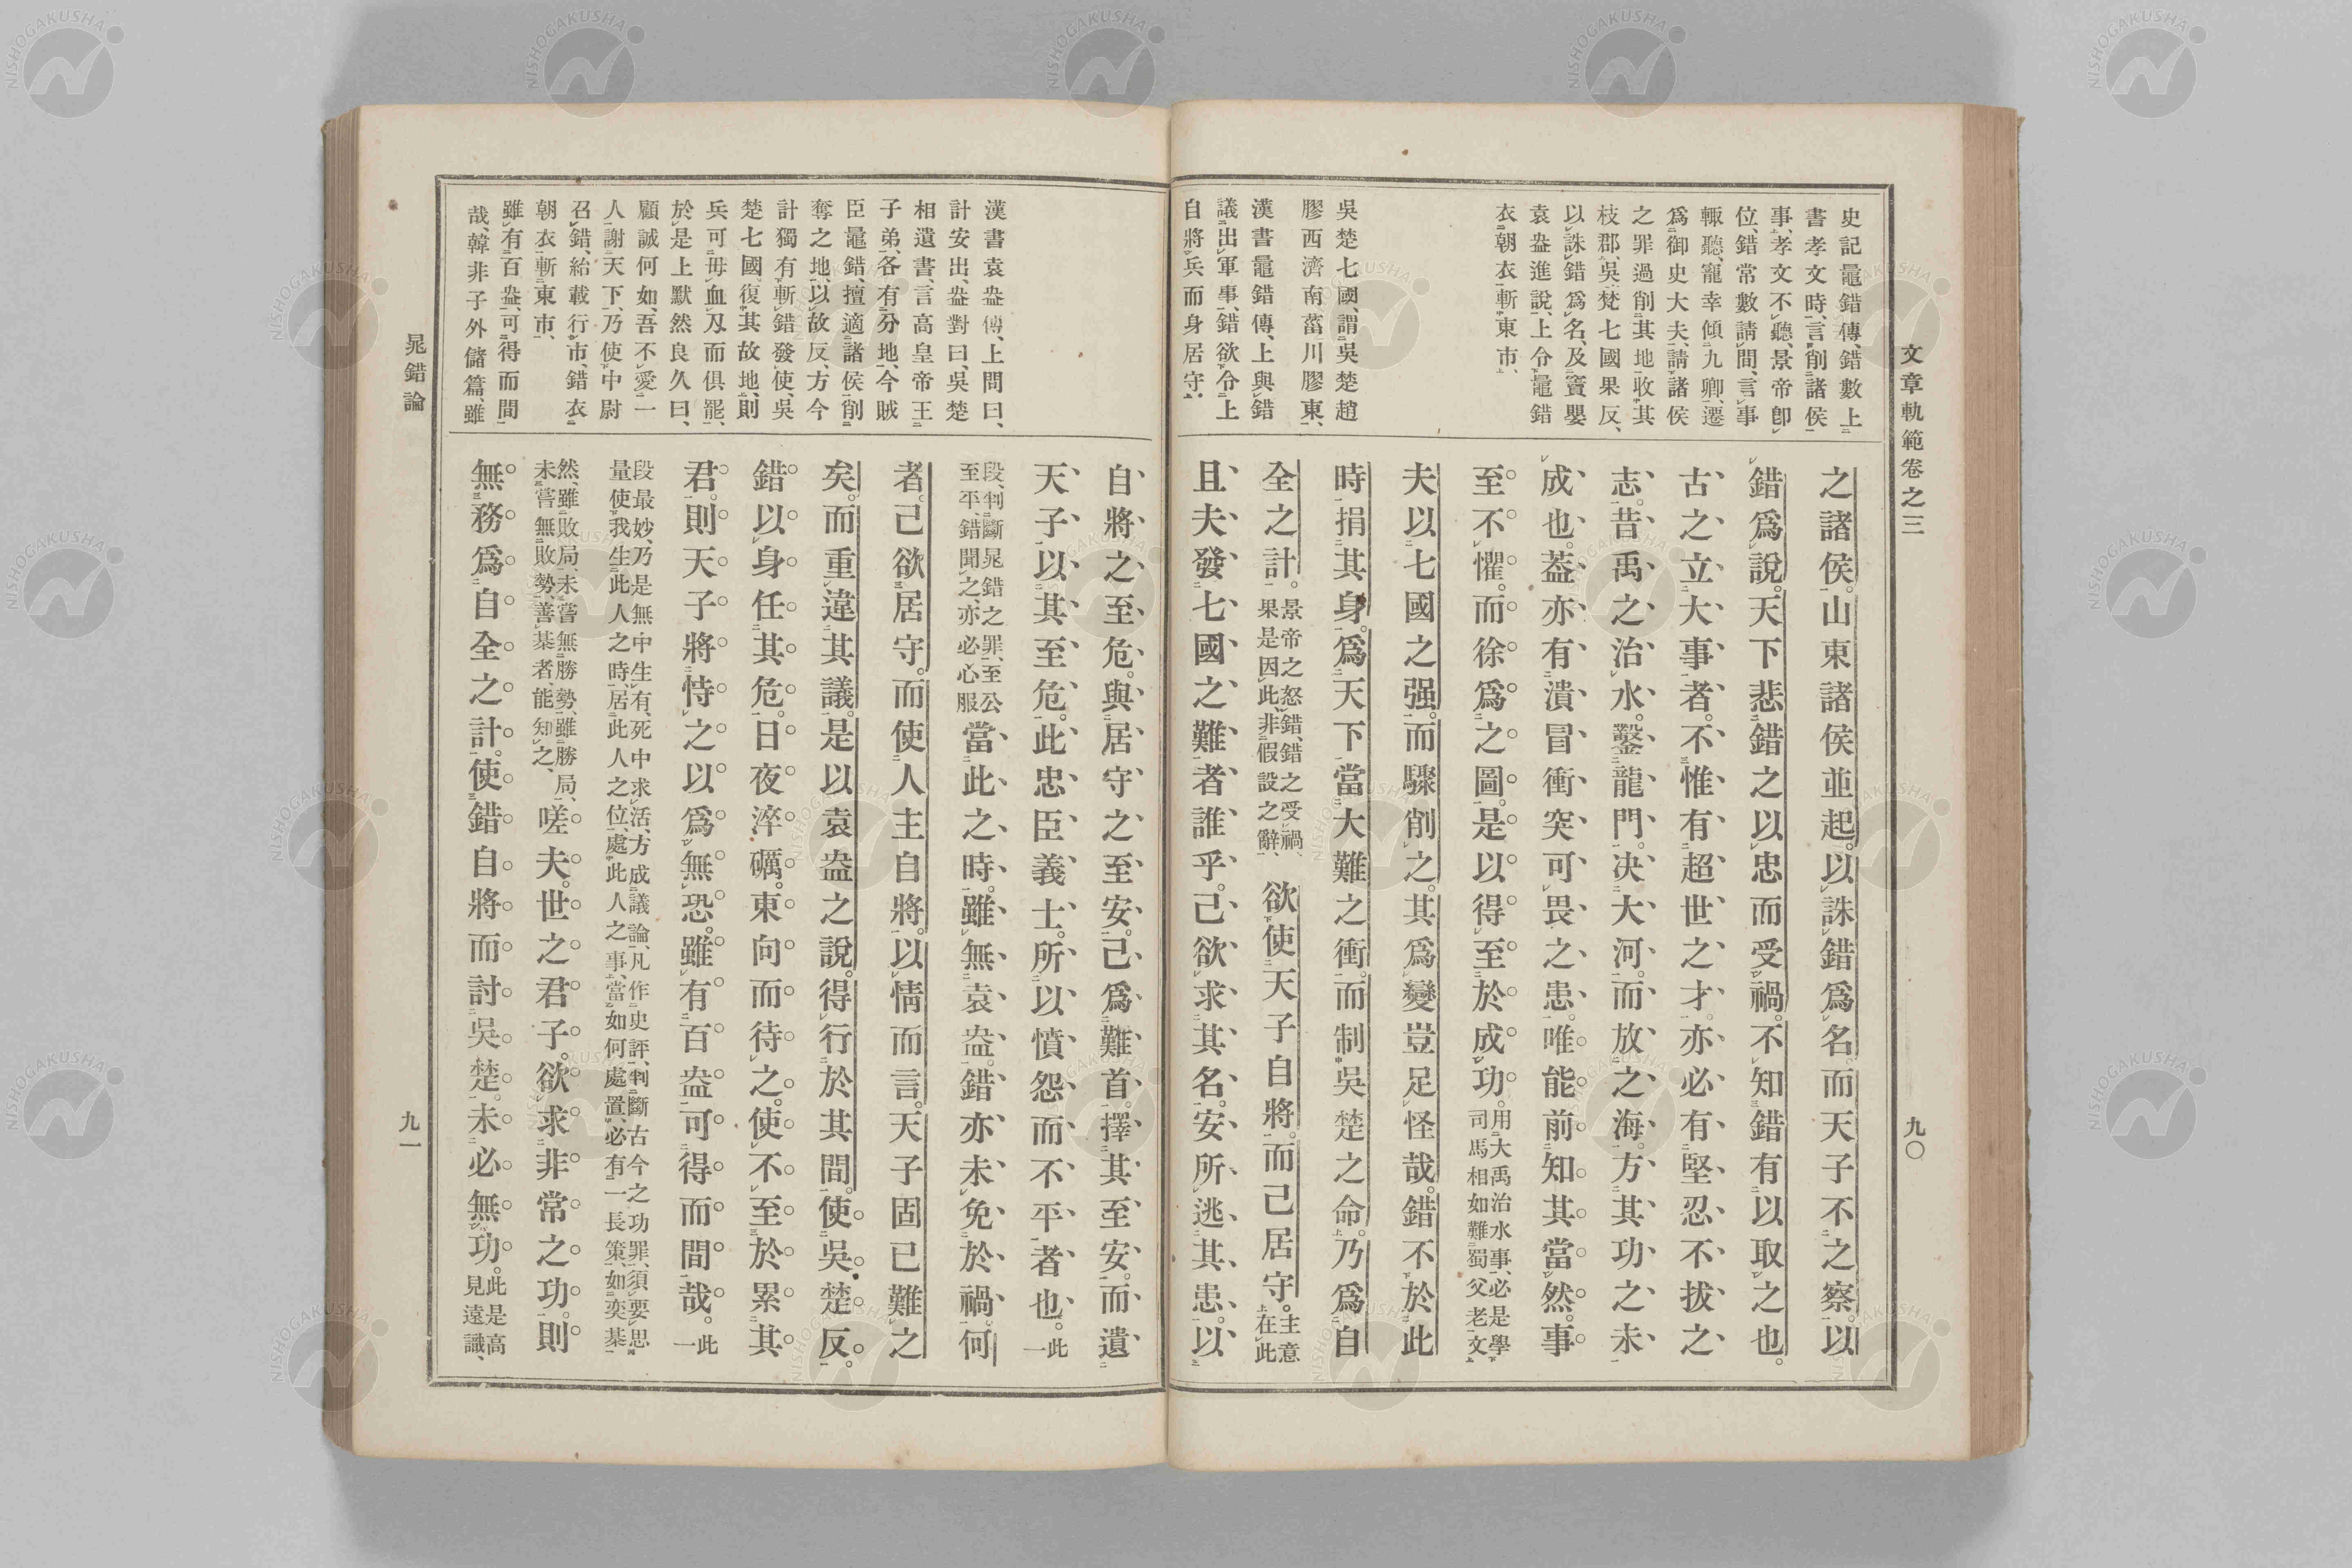 文章軌範卷之三
九〇
史記鼂錯傳、錯數上
書孝文時、言削諸侯
事、孝文不聽、景帝卽
位、錯常數請間、言事
輙聽、寵幸傾九卿、遷
爲御史大夫、請諸侯
之罪過削其地收其
枝郡、吳梵七國果反、
以誅錯爲名、及竇嬰
袁盎進說、上令鼂錯
衣朝衣斬東市、
吳楚七國、謂吳楚趙
膠西濟南菑川膠東、
漢書鼂錯傳、上與錯
議出軍事、錯欲令上
自將兵而身居守、
之諸侯。山東諸侯並起。以誅錯爲名。而天子不之察。以
錯爲說。天下悲錯之以忠而受禍。不知錯有以取之也。
古之立大事者。不惟有超世之才。亦必有堅忍不拔之
志。昔禹之治水。鑿龍門。決大河。而放之海。方其功之未
成也。蓋亦有潰冒衝突可畏之患。唯能前知其當然。事
至不懼。而徐爲之圖。是以得至於成功。用大禹治水事、必是學
司馬相如難蜀父老文
夫以七國之强。而驟削之。其爲變豈足怪哉。錯不於此
時捐其身。爲天下當大難之衝。而制吳楚之命。乃爲自
全之計。景帝之怒錯、錯之受禍、
果是因此、非假設之辭、欲使天子自將。而己居守。主意
在此
且夫發七國之難者誰乎。己欲求其名。安所逃其患。以
自將之至危。與居守之至安。己爲難首。擇其至安。而遺
天子以其至危。此忠臣義士。所以憤怨而不平者也。此
一
段、判斷晁錯之罪、至公
至平、錯聞之、亦必心服當此之時。雖無袁盎。錯亦未免於禍。何
者。己欲居守。而使人主自將。以情而言。天子固已難之
矣。而重違其議。是以袁盎之說。得行於其間。使吳楚反。
錯以身任其危。日夜淬礪。東向而待之。使不至於累其
君。則天子將恃之以爲無恐。雖有百盎可得而間哉。此
一
段最妙、乃是無中生有、死中求活、方成議論、凡作史評、判斷古今之功罪、須要思
量使我生此人之時、居此人之位、處此人之事、當如何處置、必有一長策、如奕棊
然、雖敗局、未嘗無勝勢、雖勝局、
未嘗無敗勢、善棊者、能知之、嗟夫。世之君子。欲求非常之功。則
無務爲自全之計。使錯自將而討吳楚。未必無功。此是高
見遠識、
漢書袁盎傳、上問曰、
計安出、盎對曰、吳楚
相遺書、言高皇帝王
子弟、各有分地、今賊
臣鼂錯、擅適諸侯削
奪之地、以故反、方今
計獨有斬錯發使、吳
楚七國、復其故地、則
兵可毋血刄而俱罷、
於是上默然良久曰、
顧誠何如、吾不愛一
人謝天下、乃使中尉
召錯紿載行市、錯衣
朝衣斬東市、
雖有百盎、可得而間
哉、韓非子外儲篇、雖
晁錯論
九一
NISHOGAKUSHA